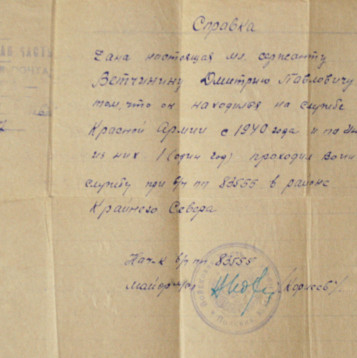 Справка
Дана настоящая мл. сержанту
Ветчинину Дмитрию Павловичу
том, что он находился на службе
Красной Армии с 1940 года и по
из них 1 (один год) проходил
службу при в/ч пп 83555 в районе
Крайнего Севера
Нач-к в/ч пп 83555
Майор